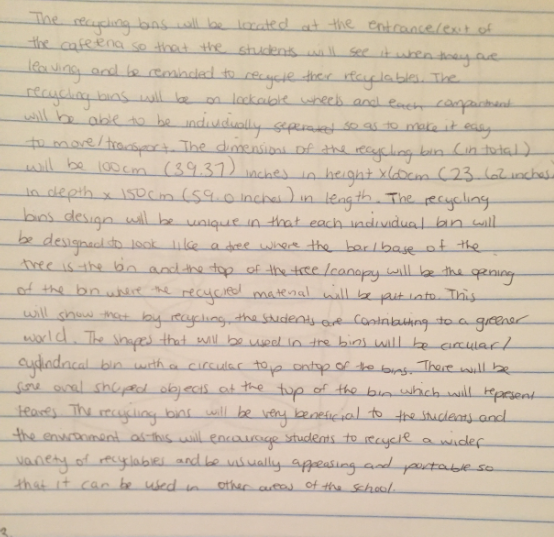 The recycling bins will be located at the entrance/exit of
the cafeteria so that the students will see it when they are
leaving and be reminded to recycle their recyclables. The
recycling bins will be on lockable wheels and each compartment
will be able to be individually seperated so as to make it easy
to move/transport. The dimensions of the recycling bin (in total)
will be 100cm (39.37) inches in height x 60cm (23.62 inches
in depth x 150cm (59.0 inches) in length. The recycling
bins design will be unique in that each individual bin will
be designed to look like a tree where the bar/base of the
tree is the bin and the top of the tree/canopy will be the opening
of the bin where the recycled material will be put into. This
will show that by recycling, the students are contributing to a greener
world. The shapes that will be used in the bins will be circular/
cylindrical bin with a circular top ontop of the bins. There will be
some oval shaped objects at the top of the bin which will represent
leaves. The recycling bins will be very beneficial to the students and
the environment as this will encourage students to recycle a wider
variety of recylables and be visually appeasing and portable so
that it can be used in other areas of the school.